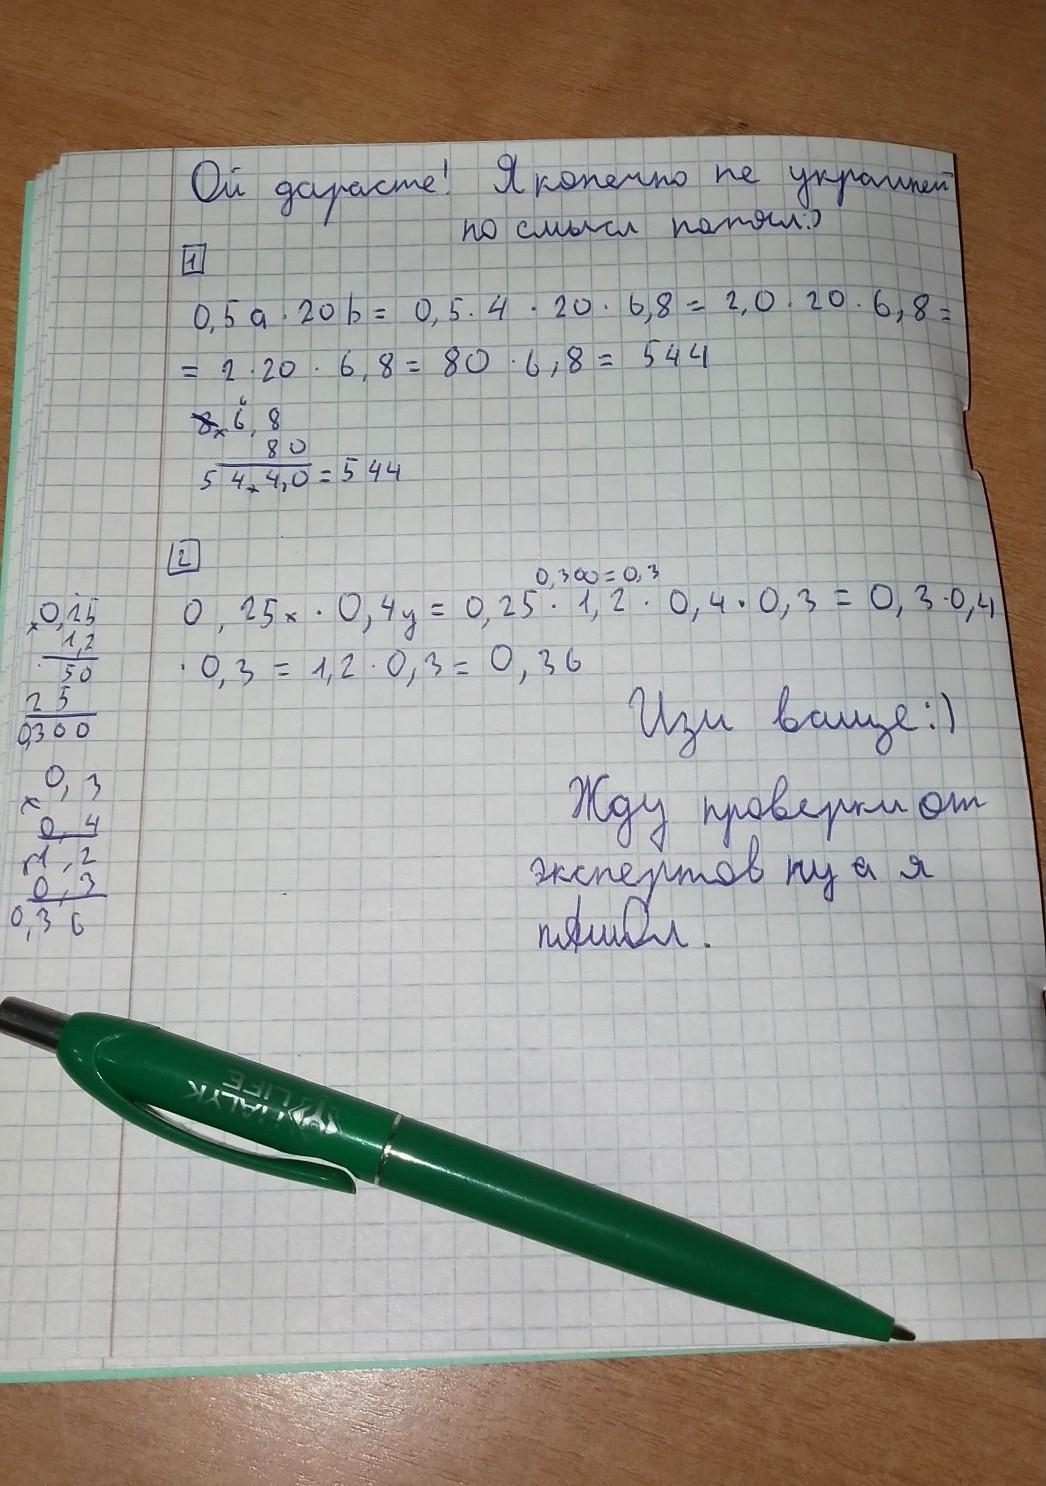 Ой дарасте! Я конечно не украиней
но смысл понял:)
1
0,5a · 20b = 0,5 · 4 · 20 · 6,8 = 2,0 · 20 · 6,8 =
= 2 · 20 · 6,8 = 80 · 6,8 = 544
6
× 6,8
80
54 4,0 = 544
2
0,300 = 0,3
0,25x · 0,4y = 0,25 · 1,2 · 0,4 · 0,3 = 0,3 · 0,4
· 0,3 = 1,2 · 0,3 = 0,36
× 0,25
1,2
50
25
0,300
× 0,3
0,4
1,2
0,3
0,36
Изи ваще:)
Жду проверки от
экспертов ну а я
пошол.
HALYK
LIFE